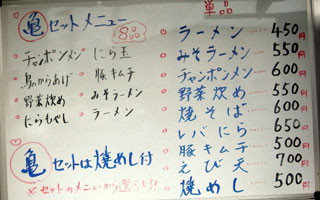 亀セットメニュー
8品
チャンポンメン にら玉
鳥からあげ 豚キムチ
野菜炒め みそラーメン
にらもやし ラーメン
亀セットは焼めし付
※セットのメニューから選べます!
単品
ラーメン 450円
みそラーメン 550円
チャンポンメン 600円
野菜炒め 550円
焼そば 600円
レバにら 650円
豚キムチ 500円
えび天 700円
焼めし 500円